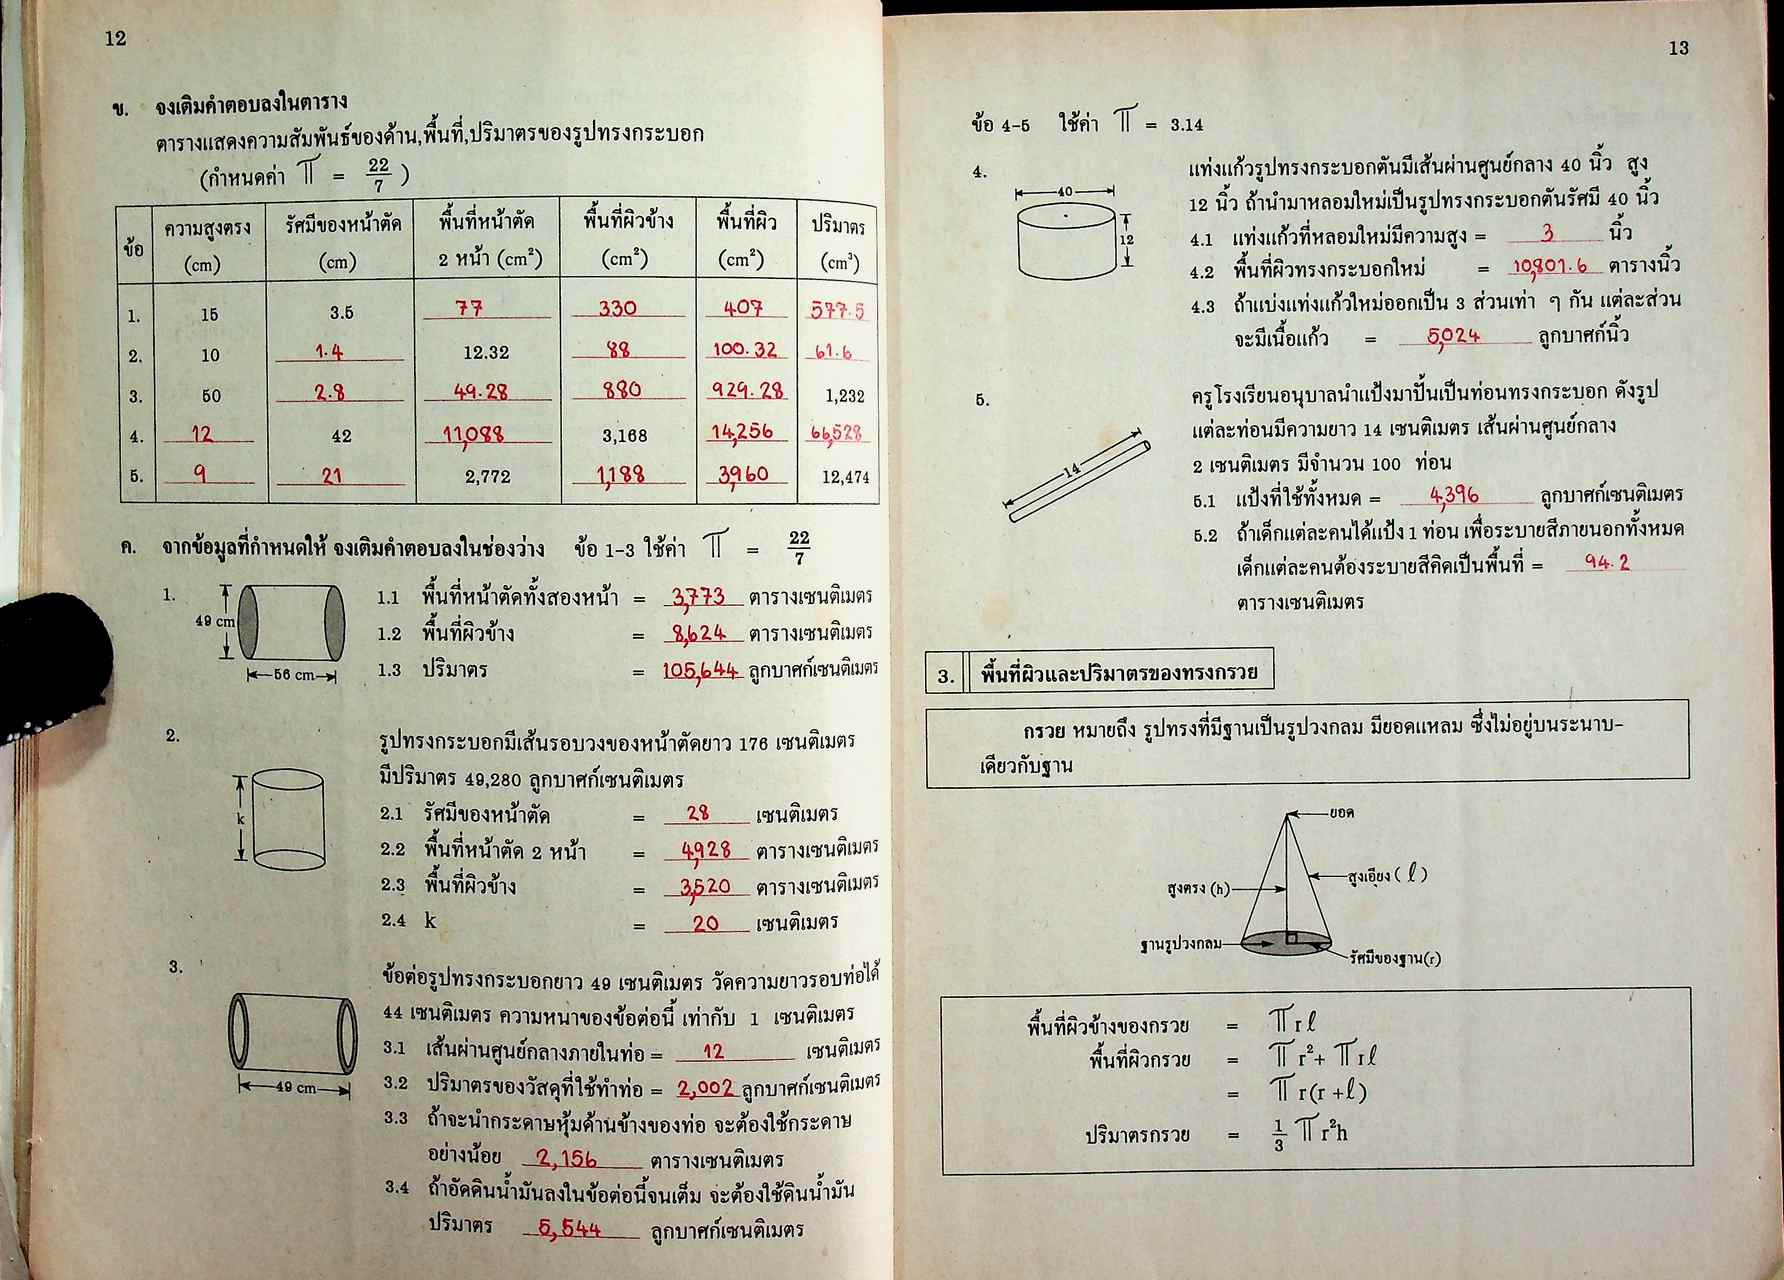 12
ข. จงเติมคำตอบลงในตาราง
ตารางแสดงความสัมพันธ์ของด้าน,พื้นที่,ปริมาตรของรูปทรงกระบอก
(กำหนดค่า π = 22/7 )
ข้อ ความสูงตรง (cm) รัศมีของหน้าตัด (cm) พื้นที่หน้าตัด 2 หน้า (cm²) พื้นที่ผิวข้าง (cm²) พื้นที่ผิว (cm²) ปริมาตร (cm³)
1. 15 3.5 77 330 407 577.5
2. 10 1.4 12.32 88 100.32 61.6
3. 50 2.8 49.28 880 929.28 1,232
4. 12 42 11,088 3,168 14,256 66,528
5. 9 21 2,772 1,188 3,960 12,474
ค. จากข้อมูลที่กำหนดให้ จงเติมคำตอบลงในช่องว่าง ข้อ 1-3 ใช้ค่า π = 22/7
1.
49 cm
56 cm
1.1 พื้นที่หน้าตัดทั้งสองหน้า = 3,773 ตารางเซนติเมตร
1.2 พื้นที่ผิวข้าง = 8,624 ตารางเซนติเมตร
1.3 ปริมาตร = 105,644 ลูกบาศก์เซนติเมตร
2.
k
รูปทรงกระบอกมีเส้นรอบวงของหน้าตัดยาว 176 เซนติเมตร
มีปริมาตร 49,280 ลูกบาศก์เซนติเมตร
2.1 รัศมีของหน้าตัด = 28 เซนติเมตร
2.2 พื้นที่หน้าตัด 2 หน้า = 4,928 ตารางเซนติเมตร
2.3 พื้นที่ผิวข้าง = 3,520 ตารางเซนติเมตร
2.4 k = 20 เซนติเมตร
3.
49 cm
ข้อต่อรูปทรงกระบอกยาว 49 เซนติเมตร วัดความยาวรอบท่อได้
44 เซนติเมตร ความหนาของข้อต่อนี้ เท่ากับ 1 เซนติเมตร
3.1 เส้นผ่านศูนย์กลางภายในท่อ = 12 เซนติเมตร
3.2 ปริมาตรของวัสดุที่ใช้ทำท่อ = 2,002 ลูกบาศก์เซนติเมตร
3.3 ถ้าจะนำกระดาษหุ้มด้านข้างของท่อ จะต้องใช้กระดาษ
อย่างน้อย 2,156 ตารางเซนติเมตร
3.4 ถ้าอัดดินน้ำมันลงในข้อต่อนี้จนเต็ม จะต้องใช้ดินน้ำมัน
ปริมาตร 5,544 ลูกบาศก์เซนติเมตร
13
ข้อ 4-5 ใช้ค่า π = 3.14
4.
40
12
แท่งแก้วรูปทรงกระบอกตันมีเส้นผ่านศูนย์กลาง 40 นิ้ว สูง
12 นิ้ว ถ้านำมาหลอมใหม่เป็นรูปทรงกระบอกตันรัศมี 40 นิ้ว
4.1 แท่งแก้วที่หลอมใหม่มีความสูง = 3 นิ้ว
4.2 พื้นที่ผิวทรงกระบอกใหม่ = 10,801.6 ตารางนิ้ว
4.3 ถ้าแบ่งแท่งแก้วใหม่ออกเป็น 3 ส่วนเท่า ๆ กัน แต่ละส่วน
จะมีเนื้อแก้ว = 5,024 ลูกบาศก์นิ้ว
5.
14
ครูโรงเรียนอนุบาลนำแป้งมาปั้นเป็นท่อนทรงกระบอก ดังรูป
แต่ละท่อนมีความยาว 14 เซนติเมตร เส้นผ่านศูนย์กลาง
2 เซนติเมตร มีจำนวน 100 ท่อน
5.1 แป้งที่ใช้ทั้งหมด = 4,396 ลูกบาศก์เซนติเมตร
5.2 ถ้าเด็กแต่ละคนได้แป้ง 1 ท่อน เพื่อระบายสีภายนอกทั้งหมด
เด็กแต่ละคนต้องระบายสีคิดเป็นพื้นที่ = 94.2
ตารางเซนติเมตร
3. พื้นที่ผิวและปริมาตรของทรงกรวย
กรวย หมายถึง รูปทรงที่มีฐานเป็นรูปวงกลม มียอดแหลม ซึ่งไม่อยู่บนระนาบ-
เดียวกับฐาน
ยอด
สูงเอียง ( ℓ )
สูงตรง (h)
ฐานรูปวงกลม
รัศมีของฐาน(r)
พื้นที่ผิวข้างของกรวย = πrℓ
พื้นที่ผิวกรวย = πr²+ πrℓ
= πr(r +ℓ)
ปริมาตรกรวย = 1/3 πr²h